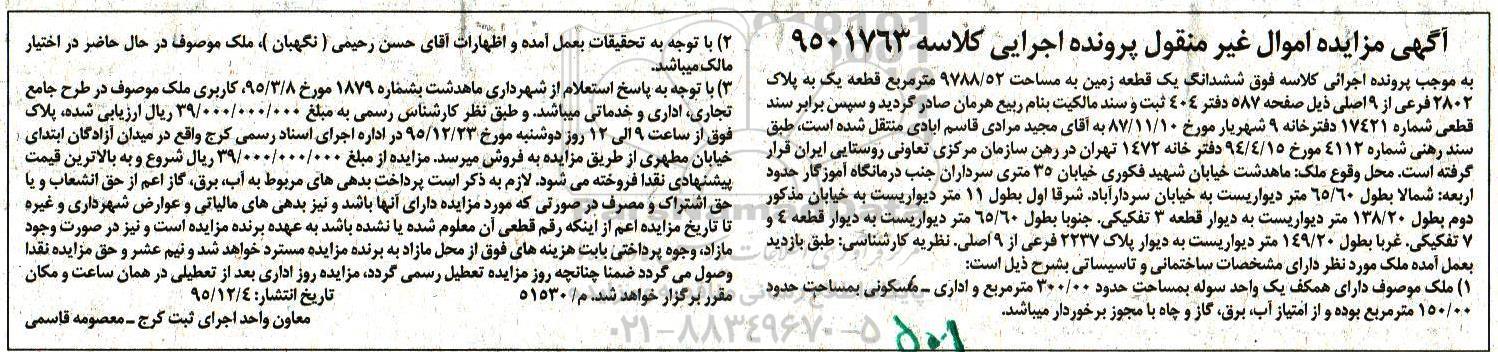 آگهی مزایده اموال غیر منقول پرونده اجرایی کلاسه ۹۵۰۱۷۶۳
به موجب پرونده اجرائی کلاسه فوق ششدانگ یک قطعه زمین به مساحت ۹۷۸۸/۵۲ مترمربع قطعه یک به پلاک
۲۸۰۲ فرعی از ۹ اصلی ذیل صفحه ۵۸۷ دفتر ۴۰۴ ثبت و سند مالکیت بنام ربیع هرمان صادر گردید و سپس برابر سند
قطعی شماره ۱۷۴۲۱ دفترخانه ۹ شهریار مورخ ۸۷/۱۱/۱۰ به آقای مجید مرادی قاسم ابادی منتقل شده است، طبق
سند رهنی شماره ۴۱۱۲ مورخ ۹۴/۴/۱۵ دفتر خانه ۱۴۷۲ تهران در رهن سازمان مرکزی تعاونی روستایی ایران قرار
گرفته است. محل وقوع ملک: ماهدشت خیابان شهید فکوری خیابان ۳۵ متری سرداران جنب درمانگاه آموزگار حدود
اربعه: شمالا بطول ۶۵/۶۰ متر دیواریست به خیابان سردارآباد. شرقا اول بطول ۱۱ متر دیواریست به خیابان مذکور
دوم بطول ۱۳۸/۲۰ متر دیواریست به دیوار قطعه ۳ تفکیکی. جنوبا بطول ۶۵/۶۰ متر دیواریست به دیوار قطعه ۴ و
۷ تفکیکی. غربا بطول ۱۴۹/۲۰ متر دیواریست به دیوار پلاک ۲۲۳۷ فرعی از ۹ اصلی. نظریه کارشناسی: طبق بازدید
بعمل آمده ملک مورد نظر دارای مشخصات ساختمانی و تاسیساتی بشرح ذیل است:
۱) ملک موصوف دارای همکف یک واحد سوله بمساحت حدود ۳۰۰/۰۰ مترمربع و اداری ـ مسکونی بمساحت حدود
۱۵۰/۰۰ مترمربع بوده و از امتیاز آب، برق، گاز و چاه با مجوز برخوردار میباشد.
۲) با توجه به تحقیقات بعمل آمده و اظهارات آقای حسن رحیمی ( نگهبان )، ملک موصوف در حال حاضر در اختیار
مالک میباشد.
۳) با توجه به پاسخ استعلام از شهرداری ماهدشت بشماره ۱۸۷۹ مورخ ۹۵/۳/۸، کاربری ملک موصوف در طرح جامع
تجاری، اداری و خدماتی میباشد. و طبق نظر کارشناس رسمی به مبلغ ۳۹/۰۰۰/۰۰۰/۰۰۰ ریال ارزیابی شده، پلاک
فوق از ساعت ۹ الی ۱۲ روز دوشنبه مورخ ۹۵/۱۲/۲۳ در اداره اجرای اسناد رسمی کرج واقع در میدان آزادگان ابتدای
خیابان مطهری از طریق مزایده به فروش میرسد. مزایده از مبلغ ۳۹/۰۰۰/۰۰۰/۰۰۰ ریال شروع و به بالاترین قیمت
پیشنهادی نقدا فروخته می شود. لازم به ذکر است پرداخت بدهی های مربوط به آب، برق، گاز اعم از حق انشعاب و یا
حق اشتراک و مصرف در صورتی که مورد مزایده دارای آنها باشد و نیز بدهی های مالیاتی و عوارض شهرداری و غیره
تا تاریخ مزایده اعم از اینکه رقم قطعی آن معلوم شده یا نشده باشد به عهده برنده مزایده است و نیز در صورت وجود
مازاد، وجوه پرداختی بابت هزینه های فوق از محل مازاد به برنده مزایده مسترد خواهد شد و نیم عشر و حق مزایده نقدا
وصول می گردد ضمنا چنانچه روز مزایده تعطیل رسمی گردد، مزایده روز اداری بعد از تعطیلی در همان ساعت و مکان
مقرر برگزار خواهد شد. م/ ۵۱۵۳۰ تاریخ انتشار: ۹۵/۱۲/۴
معاون واحد اجرای ثبت کرج ـ معصومه قاسمی
۰۲۱-۸۸۳۴۹۶۷۰-۵